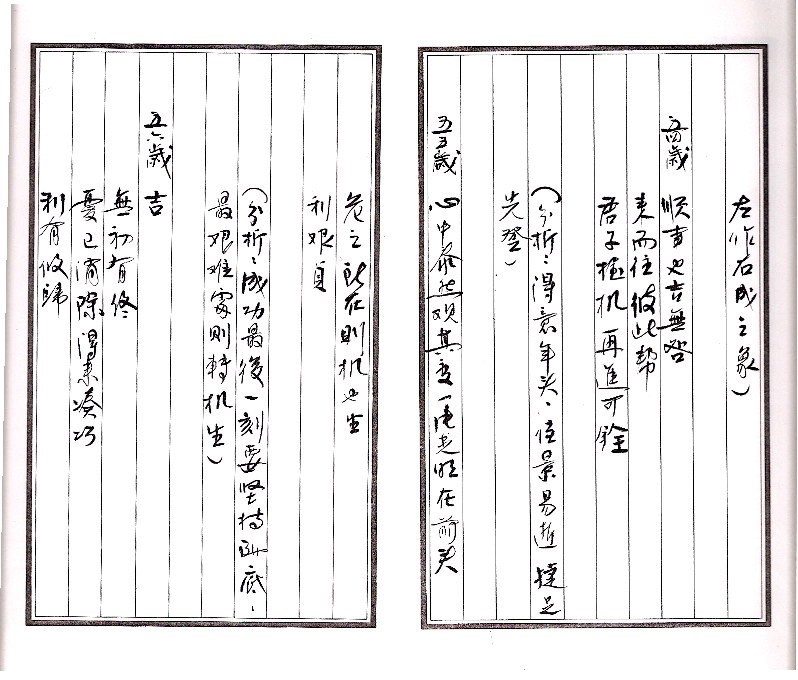 左作右成之象)
五四歲 順事也吉無咎
來而往彼此幫
君子極机再進可銓
(分析:得意年头,佳景易逝 捷足
先登)
五五歲 心中 观其变一 在前头
危之所在則机也生
利艰貞
(分析:成功最後一刻要坚持到底,
最艰难處則轉机生)
五六歲 吉
無初有終
憂已消除得來凑巧
利有攸歸